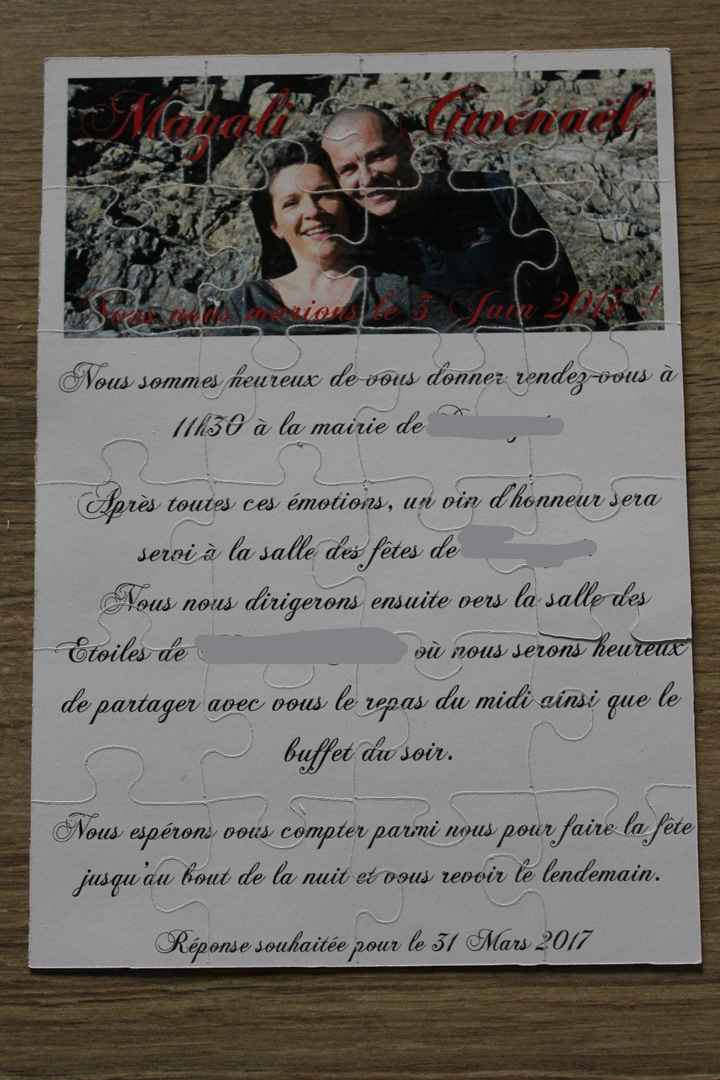 Magali Gwénaël
Nous nous marions le 3 Juin 2017 !
Nous sommes heureux de vous donner rendez-vous à
11h30 à la mairie de
Après toutes ces émotions, un vin d'honneur sera
servi à la salle des fêtes de
Nous nous dirigerons ensuite vers la salle des
Etoiles de où nous serons heureux
de partager avec vous le repas du midi ainsi que le
buffet du soir.
Nous espérons vous compter parmi nous pour faire la fête
jusqu'au bout de la nuit et vous revoir le lendemain.
Réponse souhaitée pour le 31 Mars 2017